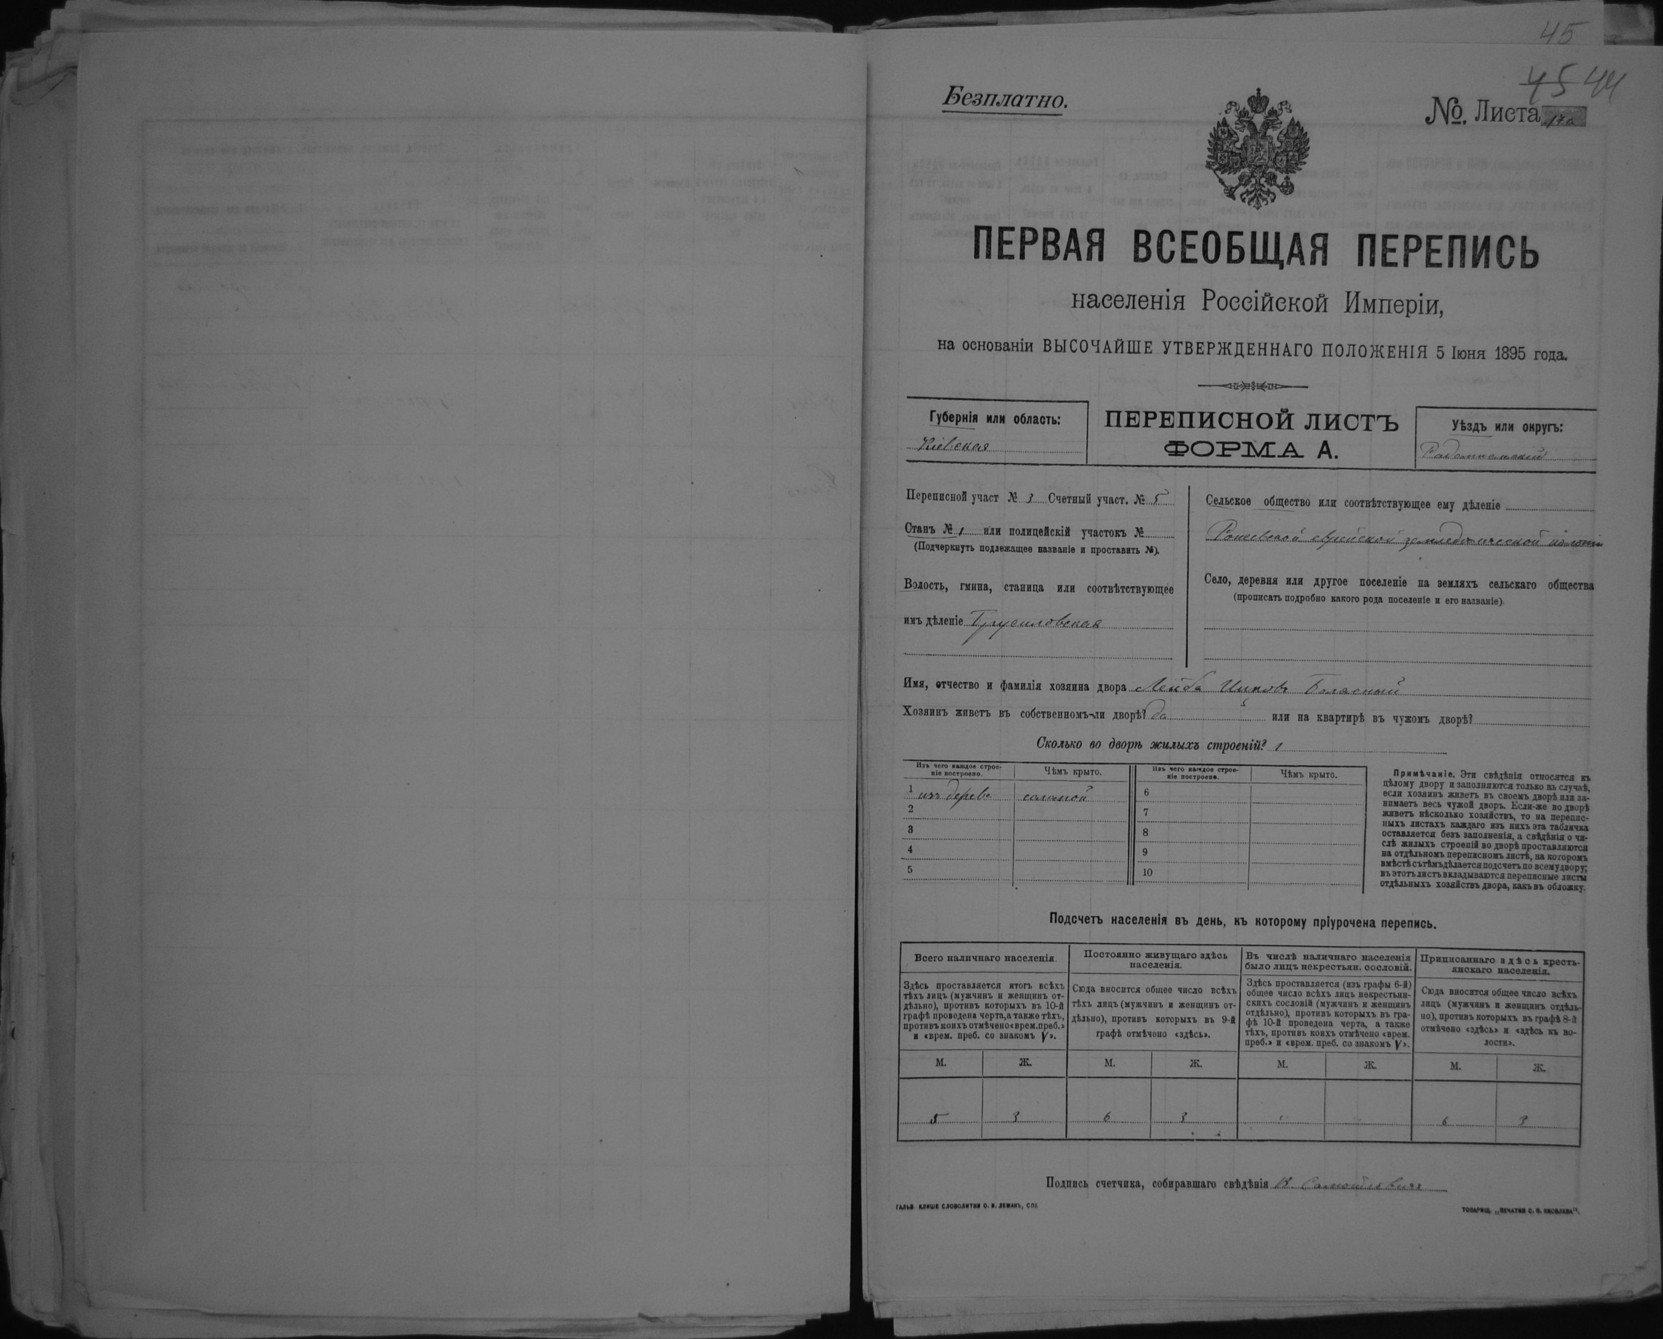 45
45 44
Безплатно.
№. Листа
ПЕРВАЯ ВСЕОБЩАЯ ПЕРЕПИСЬ
населенія Россійской Имперіи,
на основаніи ВЫСОЧАЙШЕ УТВЕРЖДЕННАГО ПОЛОЖЕНІЯ 5 Іюня 1895 года.
Губернія или область:
Кіевская
ПЕРЕПИСНОЙ ЛИСТЪ
ФОРМА А.
Уѣздъ или округъ:
Радомысльскій
Переписной участ № 3 Счетный участ. № 5
Станъ № 1 или полицейскій участокъ №
(Подчеркнуть подлежащее названіе и проставить №).
Волость, гмина, станица или соотвѣтствующее
имъ дѣленіе Брусиловская
Сельское общество или соотвѣтствующее ему дѣленіе
еврейской земледѣльческой колоніи
Село, деревня или другое поселеніе на земляхъ сельскаго общества
(прописать подробно какого рода поселеніе и его названіе).
Имя, отчество и фамилія хозяина двора Лейба Ицковъ
Хозяинъ живетъ въ собственномъ-ли дворѣ? да или на квартирѣ въ чужомъ дворѣ?
Сколько во дворѣ жилыхъ строеній? 1
Изъ чего каждое строе-
ніе построено.
Чѣмъ крыто.
Изъ чего каждое строе-
ніе построено.
Чѣмъ крыто.
1 изъ дерева соломой 6
2 7
3 8
4 9
5 10
Примѣчаніе. Эти свѣдѣнія относятся къ
цѣлому двору и заполняются только въ случаѣ,
если хозяинъ живетъ въ своемъ дворѣ или за-
нимаетъ весь чужой дворъ. Если-же во дворѣ
живетъ нѣсколько хозяйствъ, то на перепис-
ныхъ листахъ каждаго изъ нихъ эта табличка
оставляется безъ заполненія, а свѣдѣнія о чи-
слѣ жилыхъ строеній во дворѣ проставляются
на отдѣльномъ переписномъ листѣ, на которомъ
вмѣстѣ съ тѣмъ дѣлается подсчетъ по всему двору;
въ этотъ листъ вкладываются переписные листы
отдѣльныхъ хозяйствъ двора, какъ въ обложку.
Подсчетъ населенія въ день, къ которому пріурочена перепись.
Всего наличнаго населенія.
Здѣсь проставляется итогъ всѣхъ
тѣхъ лицъ (мужчинъ и женщинъ от-
дѣльно), противъ которыхъ въ 10-й
графѣ проведена черта, а также тѣхъ,
противъ коихъ отмѣчено «врем. преб.»
и «врем. преб. со знакомъ V».
Постоянно живущаго здѣсь
населенія.
Сюда вносится общее число всѣхъ
тѣхъ лицъ (мужчинъ и женщинъ от-
дѣльно), противъ которыхъ въ 9-й
графѣ отмѣчено «здѣсь».
Въ числѣ наличнаго населенія
было лицъ некрестьян. сословій.
Здѣсь проставляется (изъ графы 6-й)
общее число всѣхъ лицъ некрестьян-
скихъ сословій (мужчинъ и женщинъ
отдѣльно), противъ которыхъ въ гра-
фѣ 10-й проведена черта, а также
тѣхъ, противъ коихъ отмѣчено «врем.
преб.» и «врем. преб. со знакомъ V».
Приписаннаго здѣсь кресть-
янскаго населенія.
Сюда вносится общее число всѣхъ
лицъ (мужчинъ и женщинъ отдѣль-
но), противъ которыхъ въ графѣ 8-й
отмѣчено «здѣсь» и «здѣсь къ во-
лости».
М. Ж. М. Ж. М. Ж. М. Ж.
5 3 6 3 6 3
Подпись счетчика, собиравшаго свѣдѣнія
ТОВАРИЩ. „ПЕЧАТНЯ С. П. ЯКОВЛЕВА".